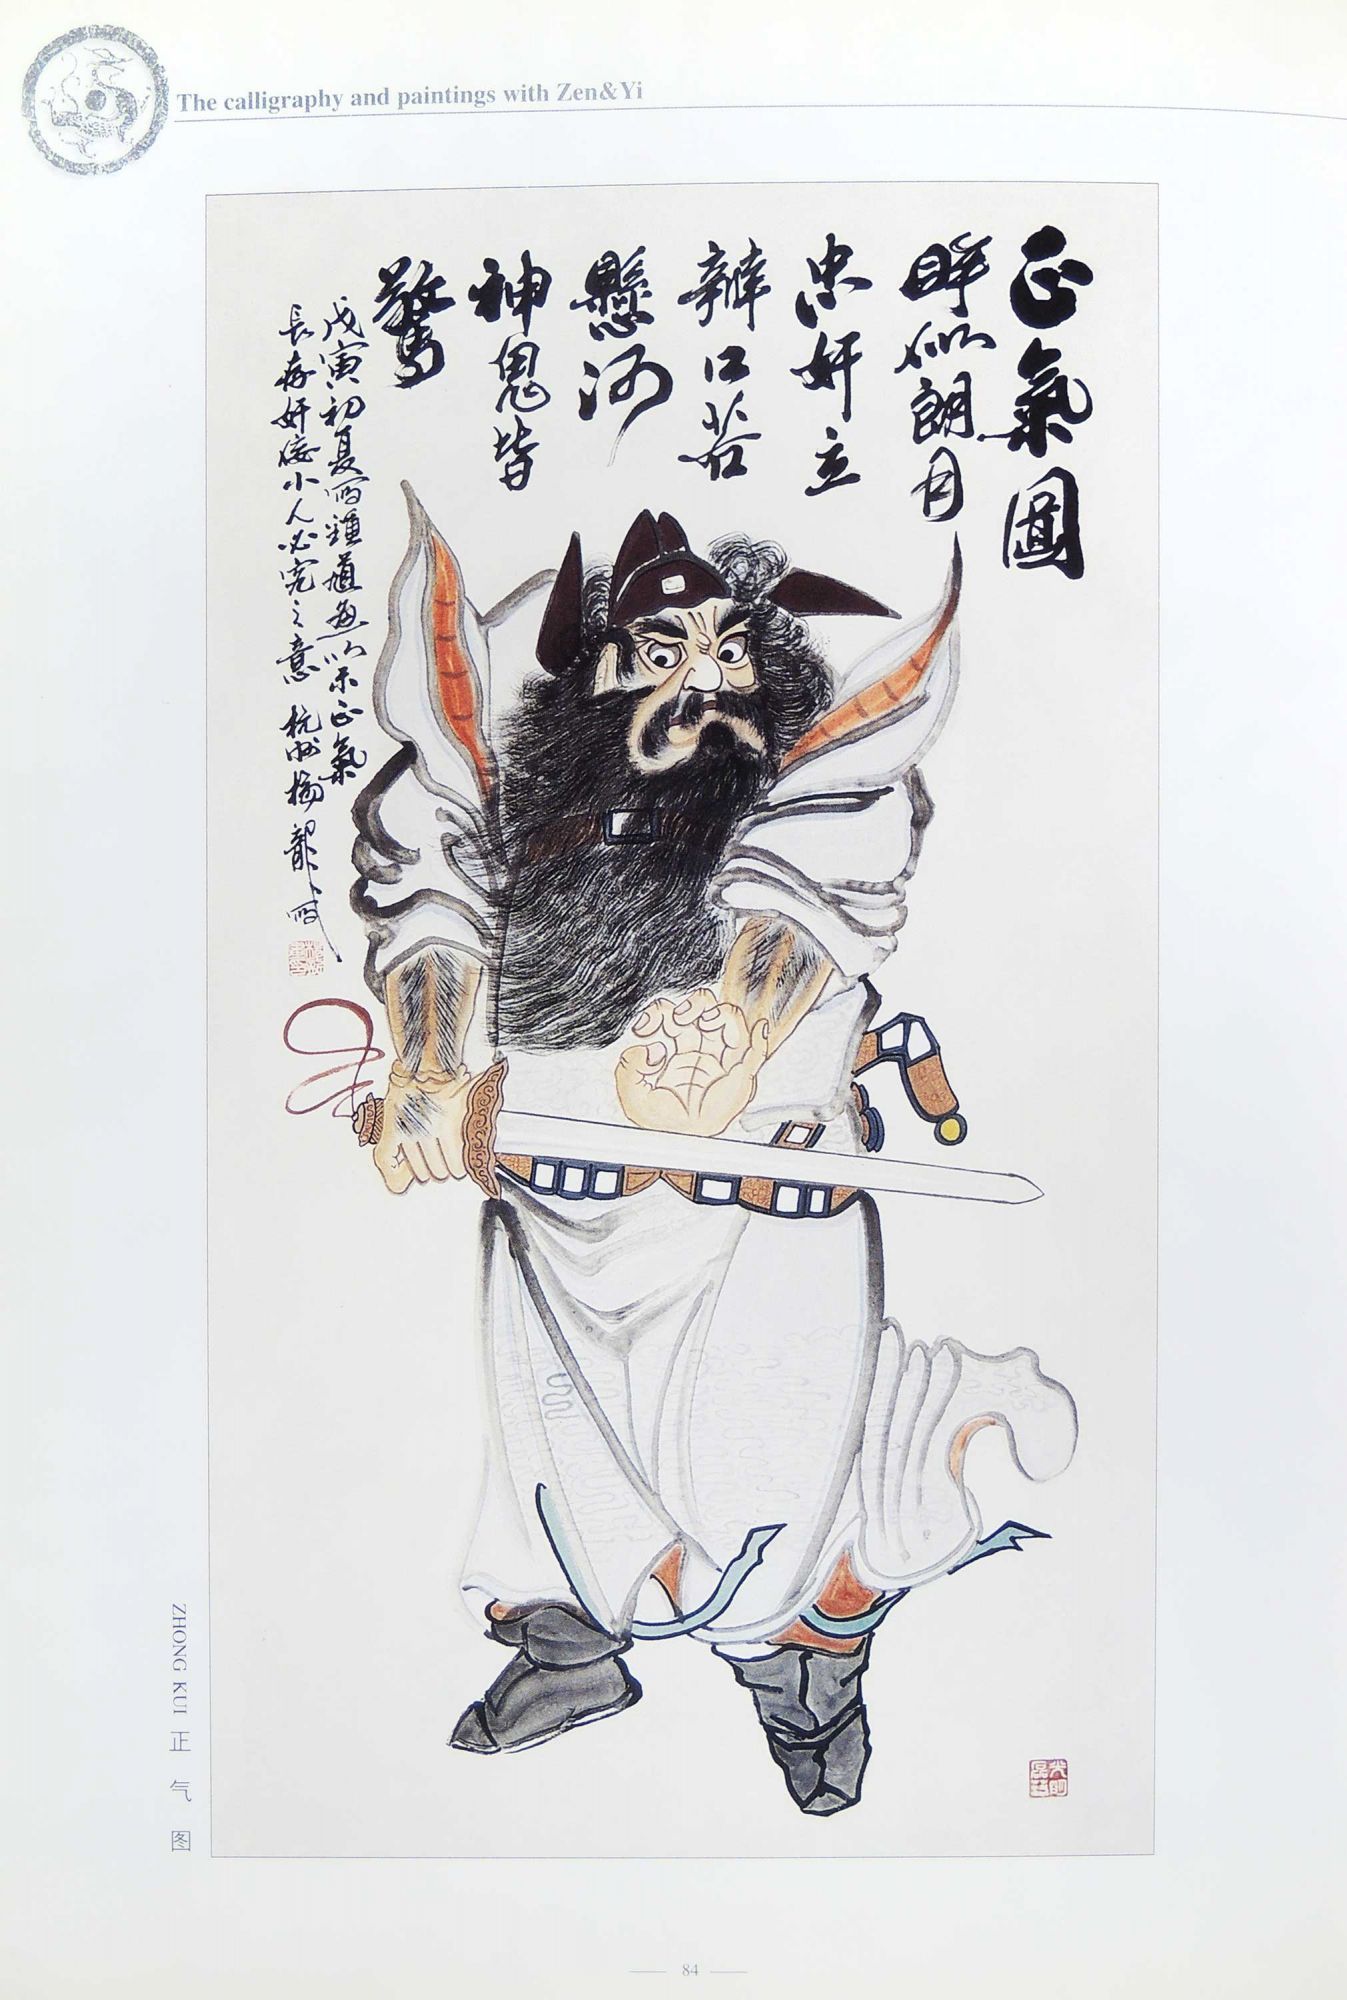 The calligraphy and paintings with Zen&Yi
正氣圖
眸似朗月
忠奸立
辨口若
懸河
神鬼皆
驚
戊寅初夏寫鍾馗盡以示正氣
長存奸佞小人必究之意 杭州楊龍
ZHONG KUI 正气图
84